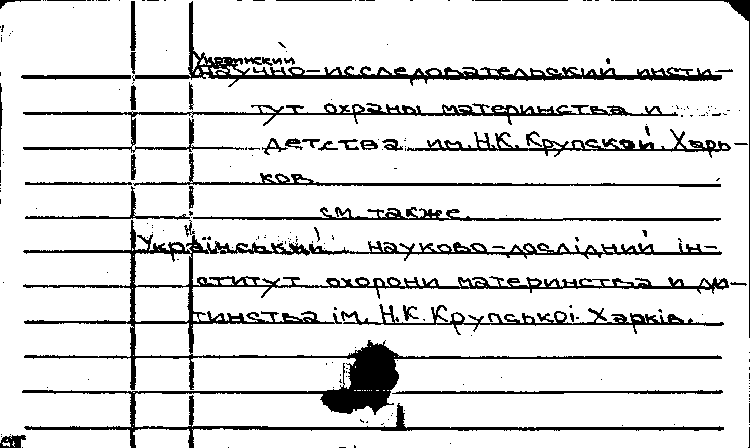 Украинский
научно-исследовательский инсти-
тут охраны материнства и
детства им. Н.К. Крупской. Харь-
ков.
см. также.
Український науково-дослідний ін-
ститут охорони материнства и ди-
тинства ім. Н.К. Крупської. Харків.